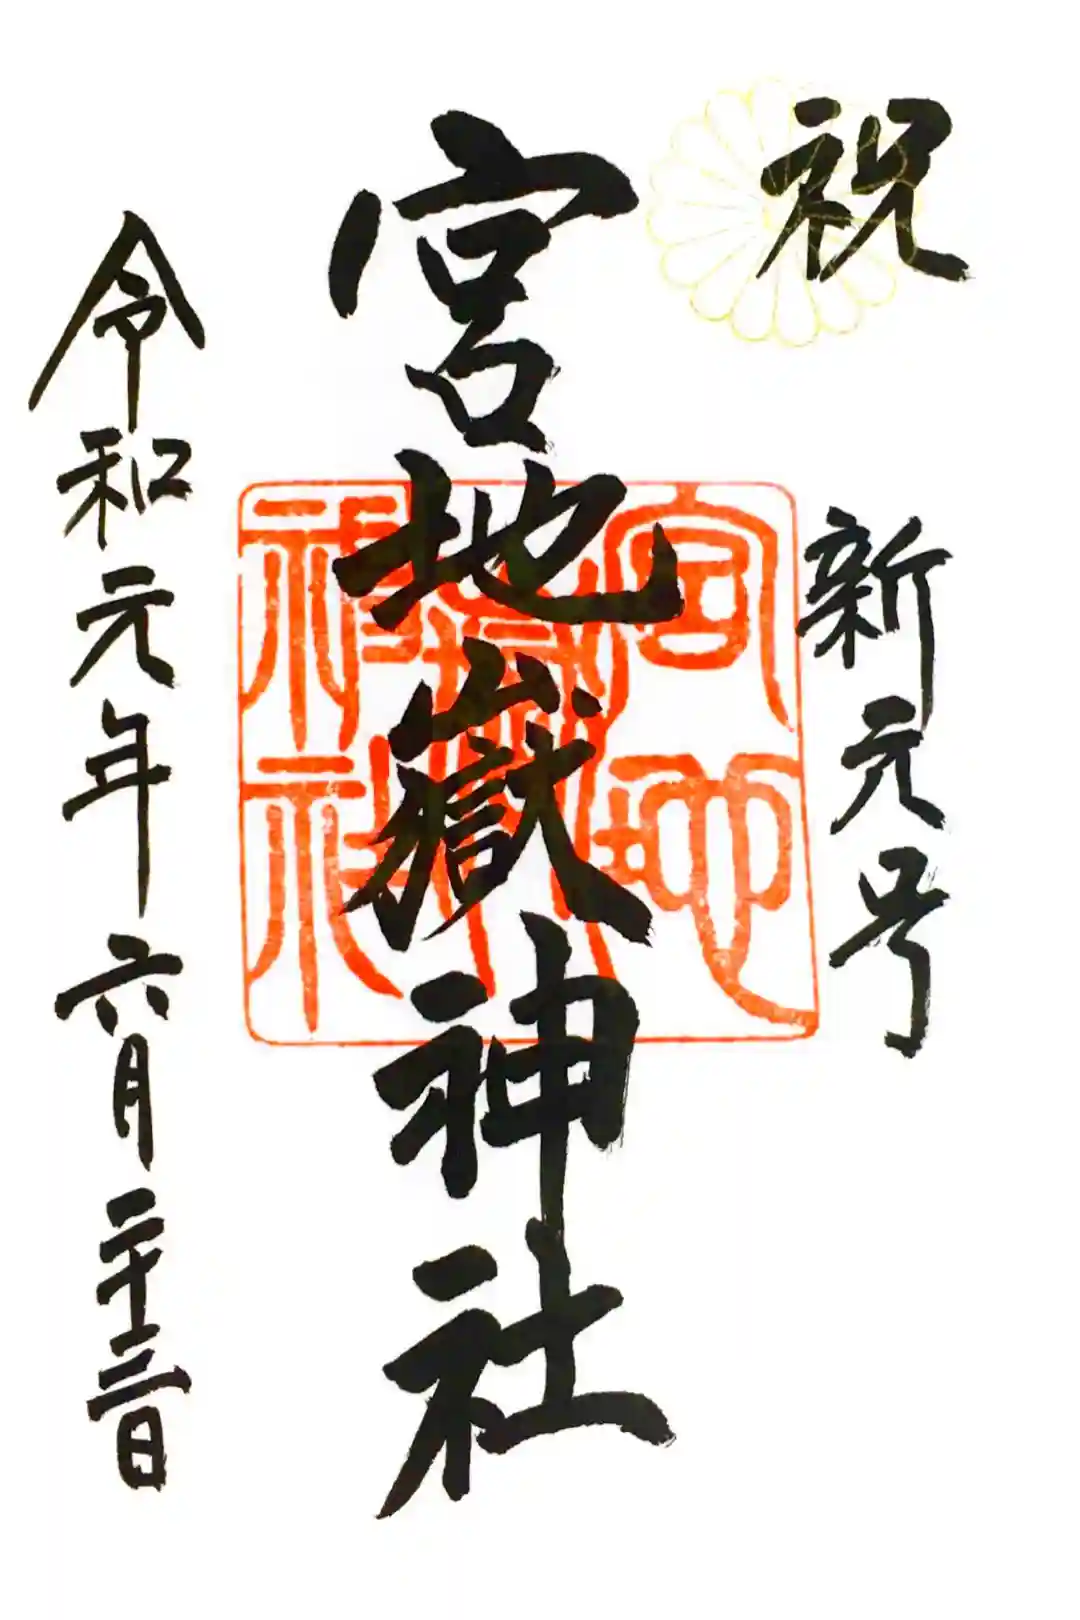 祝
新元号
宮地嶽神社
宮地
嶽
神社
令和元年六月二十三日